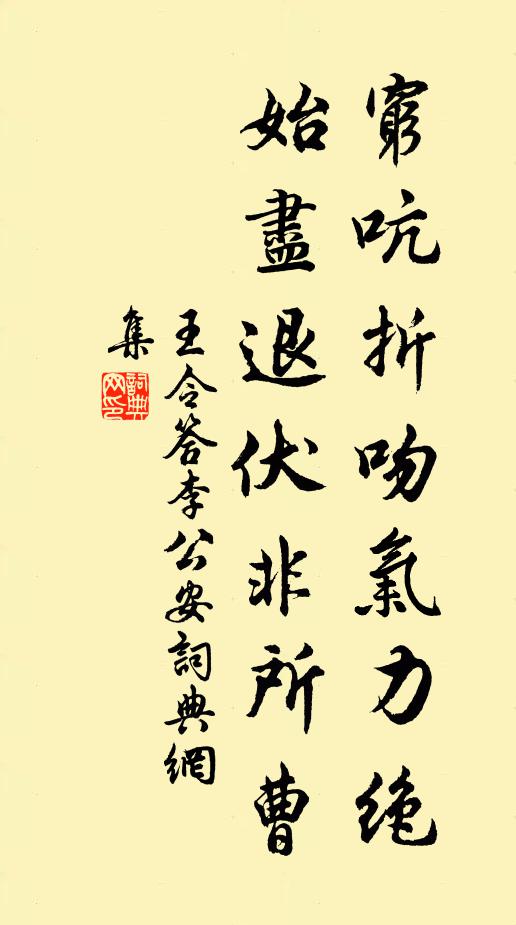 窮吭折吻氣力絶
始盡退伏非所曹
王令答李公安詞典網
集
詞典
网印